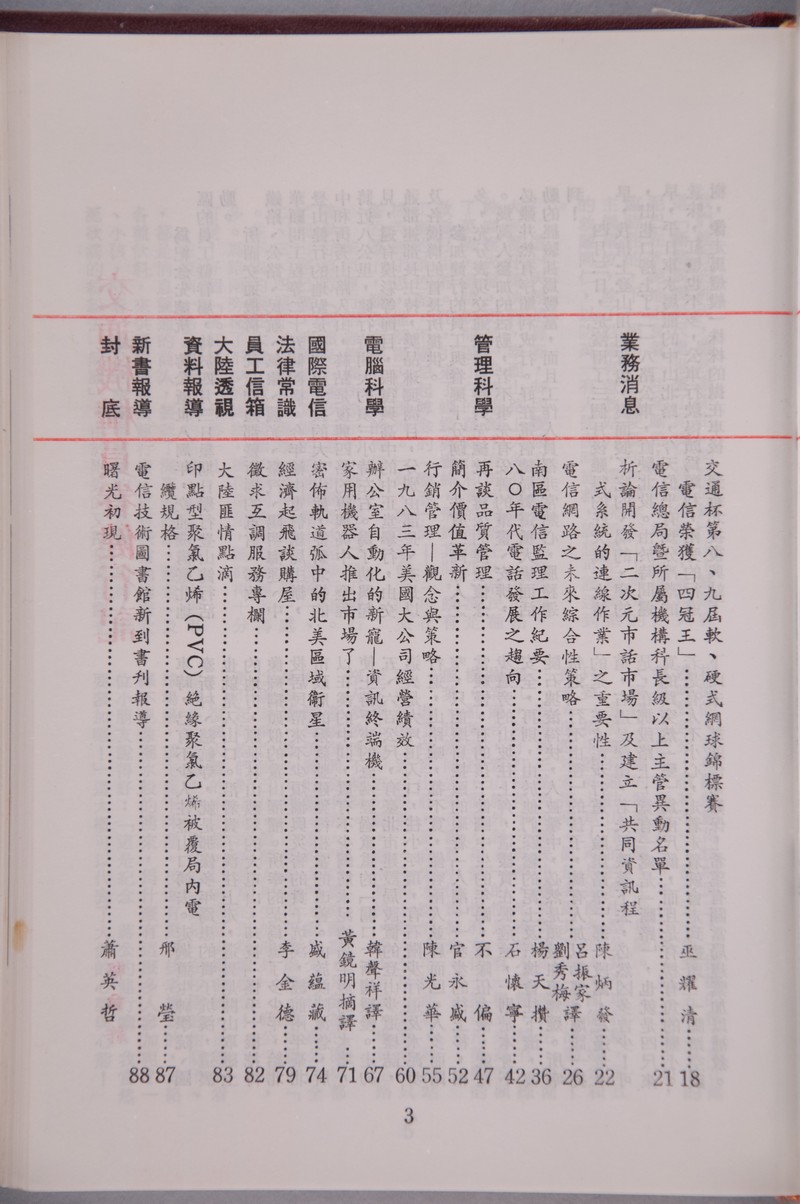 交通杯第八、九屆軟、硬式網球錦標賽
電信榮獲「四冠王」……巫耀清……18
電信總局暨所屬機構科長級以上主管異動名單……21
業務消息
析論開發「二次元市話市場」及建立「共同資訊程
式系統的連線作業」之重要性……陳炳發……22
電信網路之未來綜合性策略……呂振家 劉秀梅譯……26
南區電信監理工作紀要……楊天攢……36
八〇年代電話發展之趨向……石懷寧……42
管理科學
再談品質管理……不偏……47
簡介價值革新……官永盛……52
行銷管理—觀念與策略……陳光華……55
一九八三年美國大公司經營績效……60
電腦科學
辦公室自動化的新寵—資訊終端機……韓聲祥譯……67
家用機器人推出市場了……黃鏡明摘譯……71
國際電信
密佈軌道弧中的北美區域衛星……盛蘊藏……74
法律常識
經濟起飛談購屋……李金德……79
員工信箱
徵求互調服務專欄……82
大陸透視
大陸匪情點滴……83
資料報導
印點型聚氯乙烯(PVC)絕緣聚氯乙烯被覆局內電
纜規格……邢瑩……87
新書報導
電信技術圖書館新到書刊報導……88
封底
曙光初現……蕭英哲
3